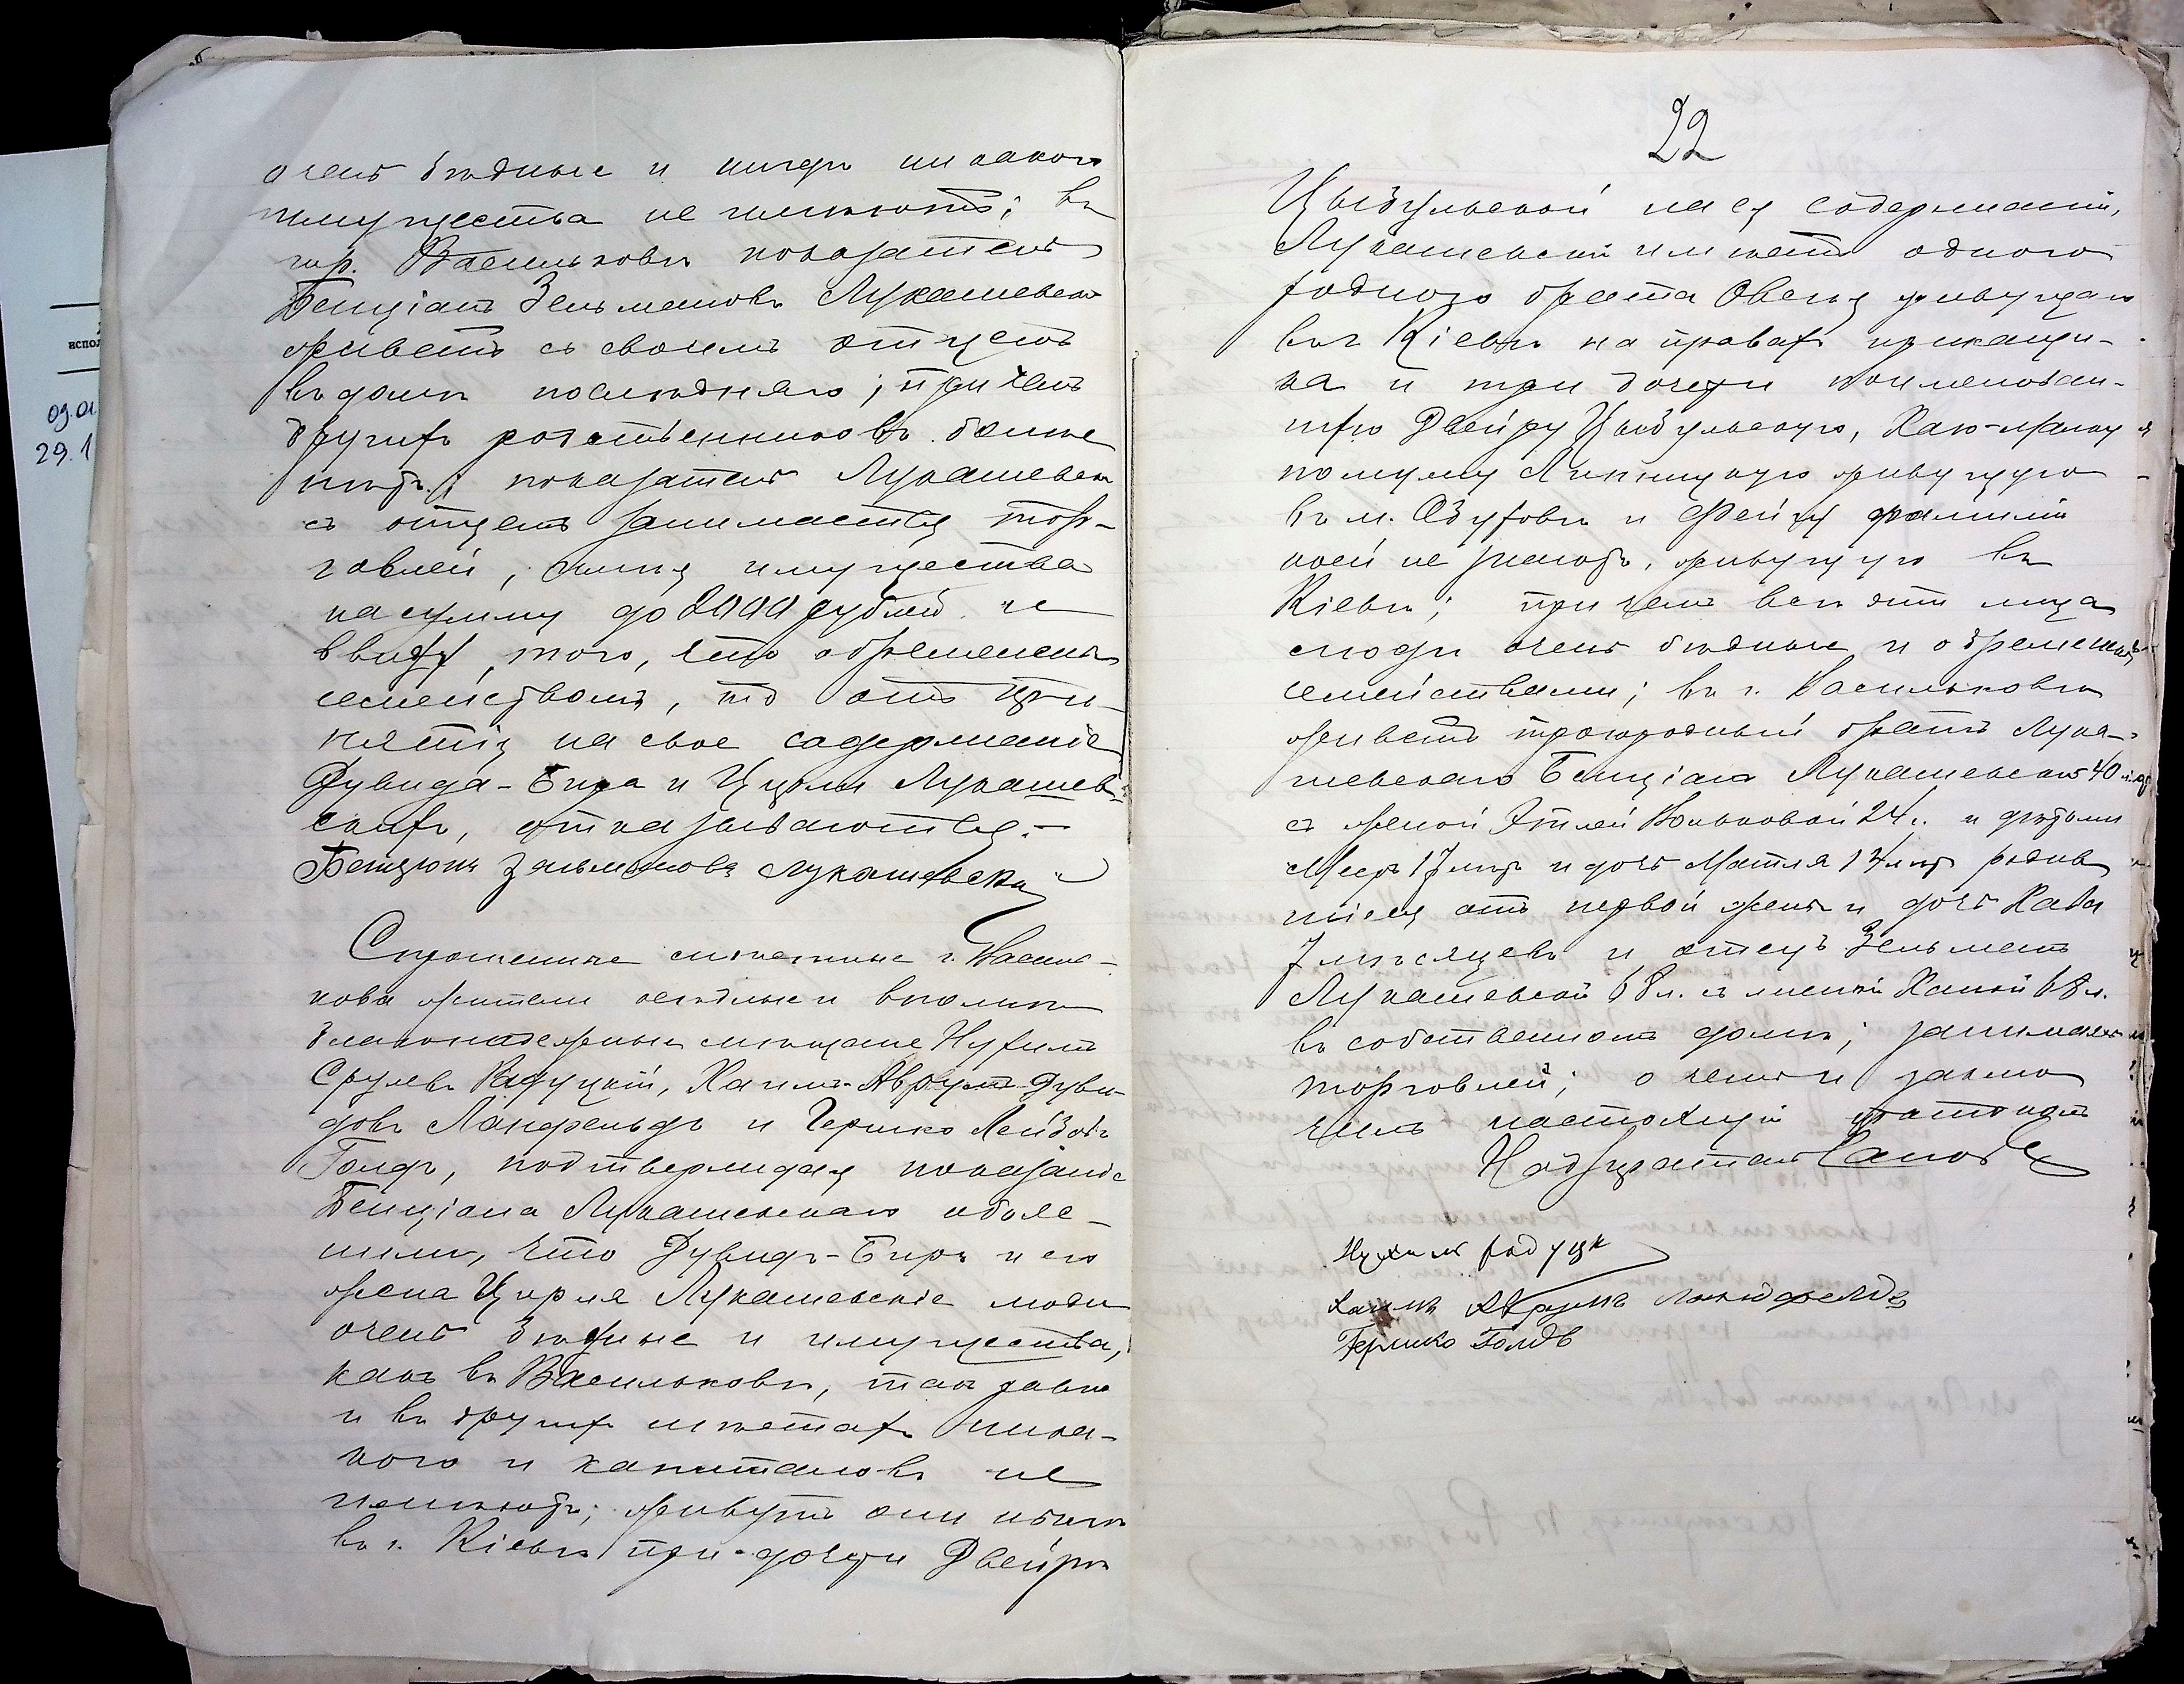 очень бѣдные и нигдѣ никакого
имущества не имѣютъ; въ
гор. Васильковѣ показатель
Бенціанъ Зельмановъ Лукашевскій
живетъ съ своимъ отцемъ
въ домѣ послѣдняго; при чемъ
другихъ родственниковъ болѣе
нѣтъ; показатель Лукашевскій
съ отцемъ занимается тор-
говлей, имѣя имущества
на сумму до 2000 рублей, но
ввиду того, что обремененъ
семействомъ, то отъ при-
нятія на свое содержаніе
Дувида-Бира и Цирли Лукашев-
скихъ, отказываются.-
Бенцюнъ Зельмановъ Лукашевскій
Спрошенные смежные г. Василь-
кова жители осѣдлые и вполнѣ
благонадежные мѣщане Нухимъ
Срулевъ Радуцкій, Хаимъ-Аврумъ Дуви-
довъ Ландфельдъ и Гершко Лейбовъ
Голдъ, подтверждая показаніе
Бенціана Лукашевскаго объяс-
нили, что Дувидъ-Биръ и его
жена Цирля Лукашевскіе люди
очень бѣдные и имущества,
какъ въ Васильковѣ, такъ равно
и въ другихъ мѣстахъ ника-
кого и капиталовъ не
имѣютъ; живутъ они нынѣ
въ г. Кіевѣ при дочери Двейрѣ
22
Цыбульской на ея содержаніи,
Лукашевскій имѣетъ одного
роднаго брата Овсея живущаго
въ г. Кіевѣ на правахъ прикащи-
ка и три дочери поименован-
ную Двейру Цыбульскую, Хаю-
по мужу живущую
въ м. и Фейгу фамиліи
коей не знаютъ, живущую въ
Кіевѣ; при чемъ всѣ эти лица
люди очень бѣдные и обременены
семействами; въ г. Васильковѣ
живетъ троюродный братъ Лука-
шевскаго Бенціанъ Лукашевскій 40 лѣтъ
съ женой Этлей Вольковой 24 г. и дѣтьми
17 лѣтъ и дочь Матля 14 лѣтъ родив
шіеся отъ первой жены и дочь Хава
7 мѣсяцевъ и отецъ Зельманъ
Лукашевскій 68 л. съ женой Ханой 68 л.
въ собственномъ домѣ; занимается
торговлей; о чемъ и заклю
чилъ настоящій протоколъ
Надзиратель
Нухимъ Радуцк
Хаимъ Аврумъ Ландфелдъ
Гершко Голдъ
испол
09.01
29.1